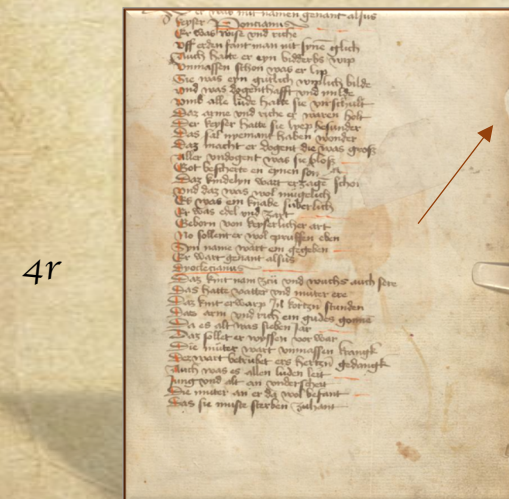 er was mit namen genant alsus
keyser Poncianus
Er was wise vnd riche
vff erden fant man nit syne glich
Auch hatte er eyn bidderbs wyp
vnmassen schon was er lyp
Sie was eyn gutlich wyplich bilde
vnd was dogenthafft vnd milde
vmb alle lude hatte sie verschult
Daz arme vnd riche er waren holt
Der keyser hatte sie lyep besunder
Das sal nyemant haben wonder
Daz macht er dogent die was groß
aller vndogent was sie bloß
Got bescherte en eynen son
Daz kindelyn wart erzage schon
vnd daz was wol mugelich
Es was ein knabe suberlich
Er was edel vnd zart
Geborn von keyserlicher art
No sollent er wol pruffen eben
Syn name wart em gegeben
Er wart genant alsus
Dyocletianus
Daz kint nam zu vnd wuchs auch sere
Das hatte vatter vnd muter ere
Daz kint erwarp in korten stunden
Daz arm vnd rich em gudes
Da es alt was sieben Jar
Daz sollet er wyssen vor war
Die muter wart vnmassen krangk
Dez wart betrubet ers hertzen gedangk
Auch was es allen luden leit
Jung vnd alt an vnderscheit
Die muter an er da wol befant
Das sie muste sterben zuhant
4r